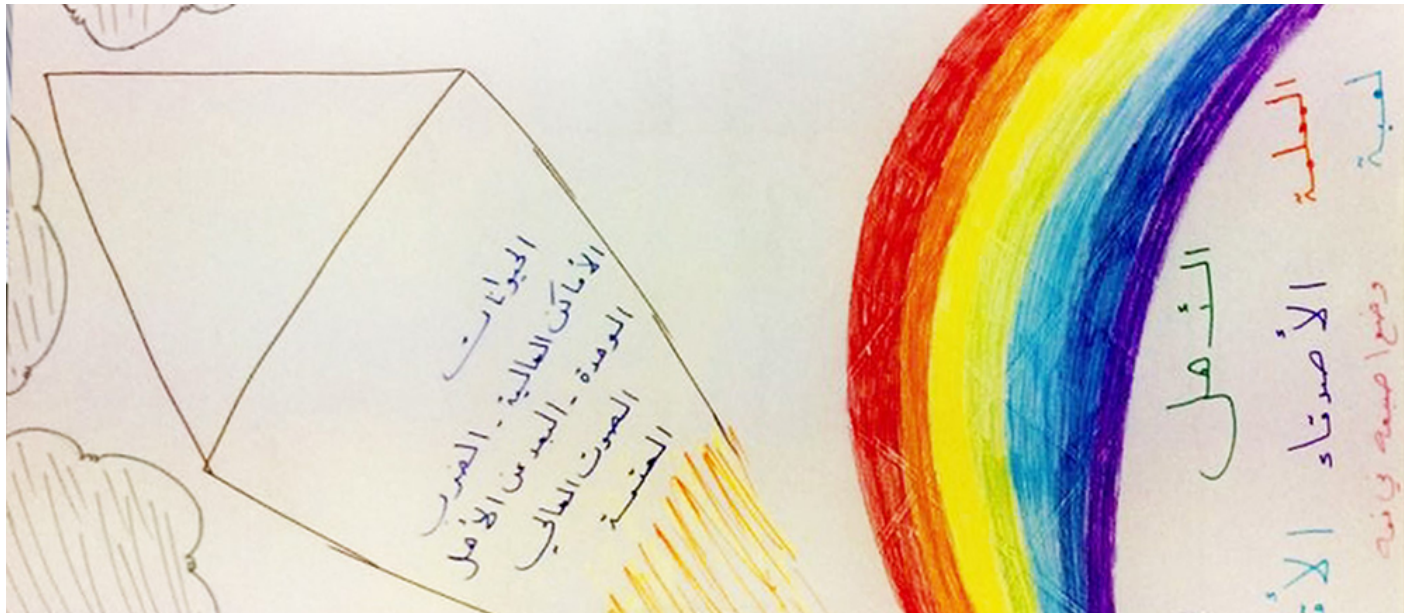 الحيوانات
الأماكن العالية - الضرب
الوحدة - البعد عن الأهل
الصوت العالي
العتمة
المعلمة الأصدقاء
لعبة وضع اصبعه في فمه